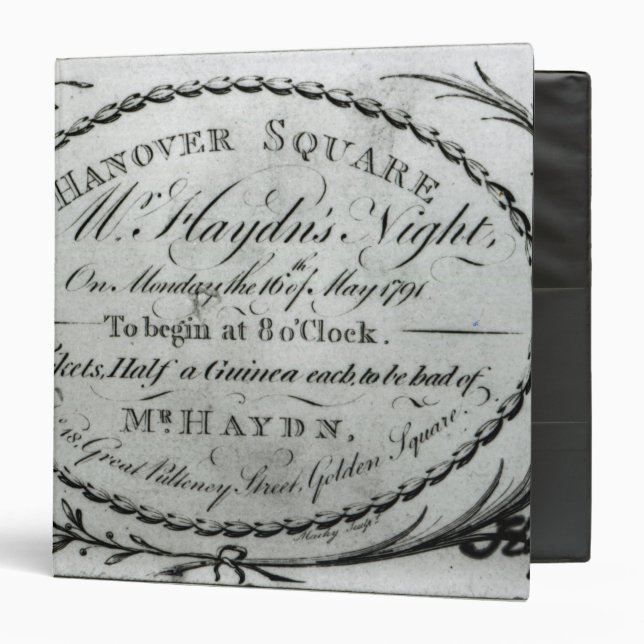 HANOVER SQUARE
Mr. Haydn's Night,
On Monday the 16th of May 1791
To begin at 8 o'Clock.
kets, Half a Guinea each, to be had of
MR. HAYDN,
18, Great Pulteney Street, Golden Square.
Sculpt.